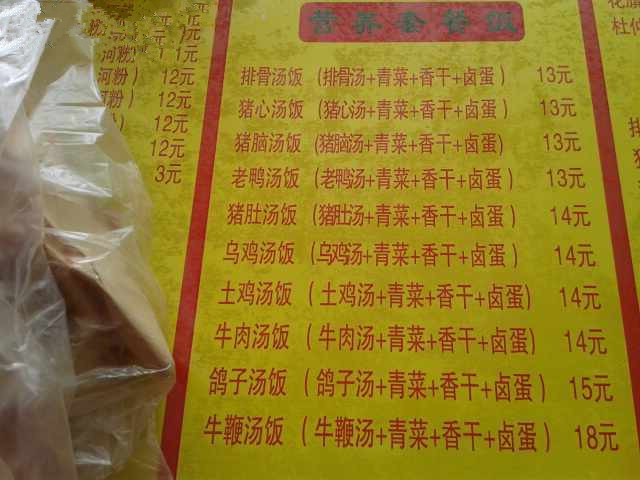 营养套餐饭
排骨汤饭（排骨汤+青菜+香干+卤蛋） 13元
猪心汤饭（猪心汤+青菜+香干+卤蛋） 13元
猪脑汤饭（猪脑汤+青菜+香干+卤蛋) 13元
老鸭汤饭（老鸭汤+青菜+香干+卤蛋） 13元
猪肚汤饭（猪肚汤+青菜+香干+卤蛋） 14元
乌鸡汤饭（乌鸡汤+青菜+香干+卤蛋） 14元
土鸡汤饭（土鸡汤+青菜+香干+卤蛋) 14元
牛肉汤饭（牛肉汤+青菜+香干+卤蛋) 14元
鸽子汤饭（鸽子汤+青菜+香干+卤蛋） 15元
牛鞭汤饭（牛鞭汤+青菜+香干+卤蛋） 18元
河粉） 12元
12元
12元
12元
3元
杜仲